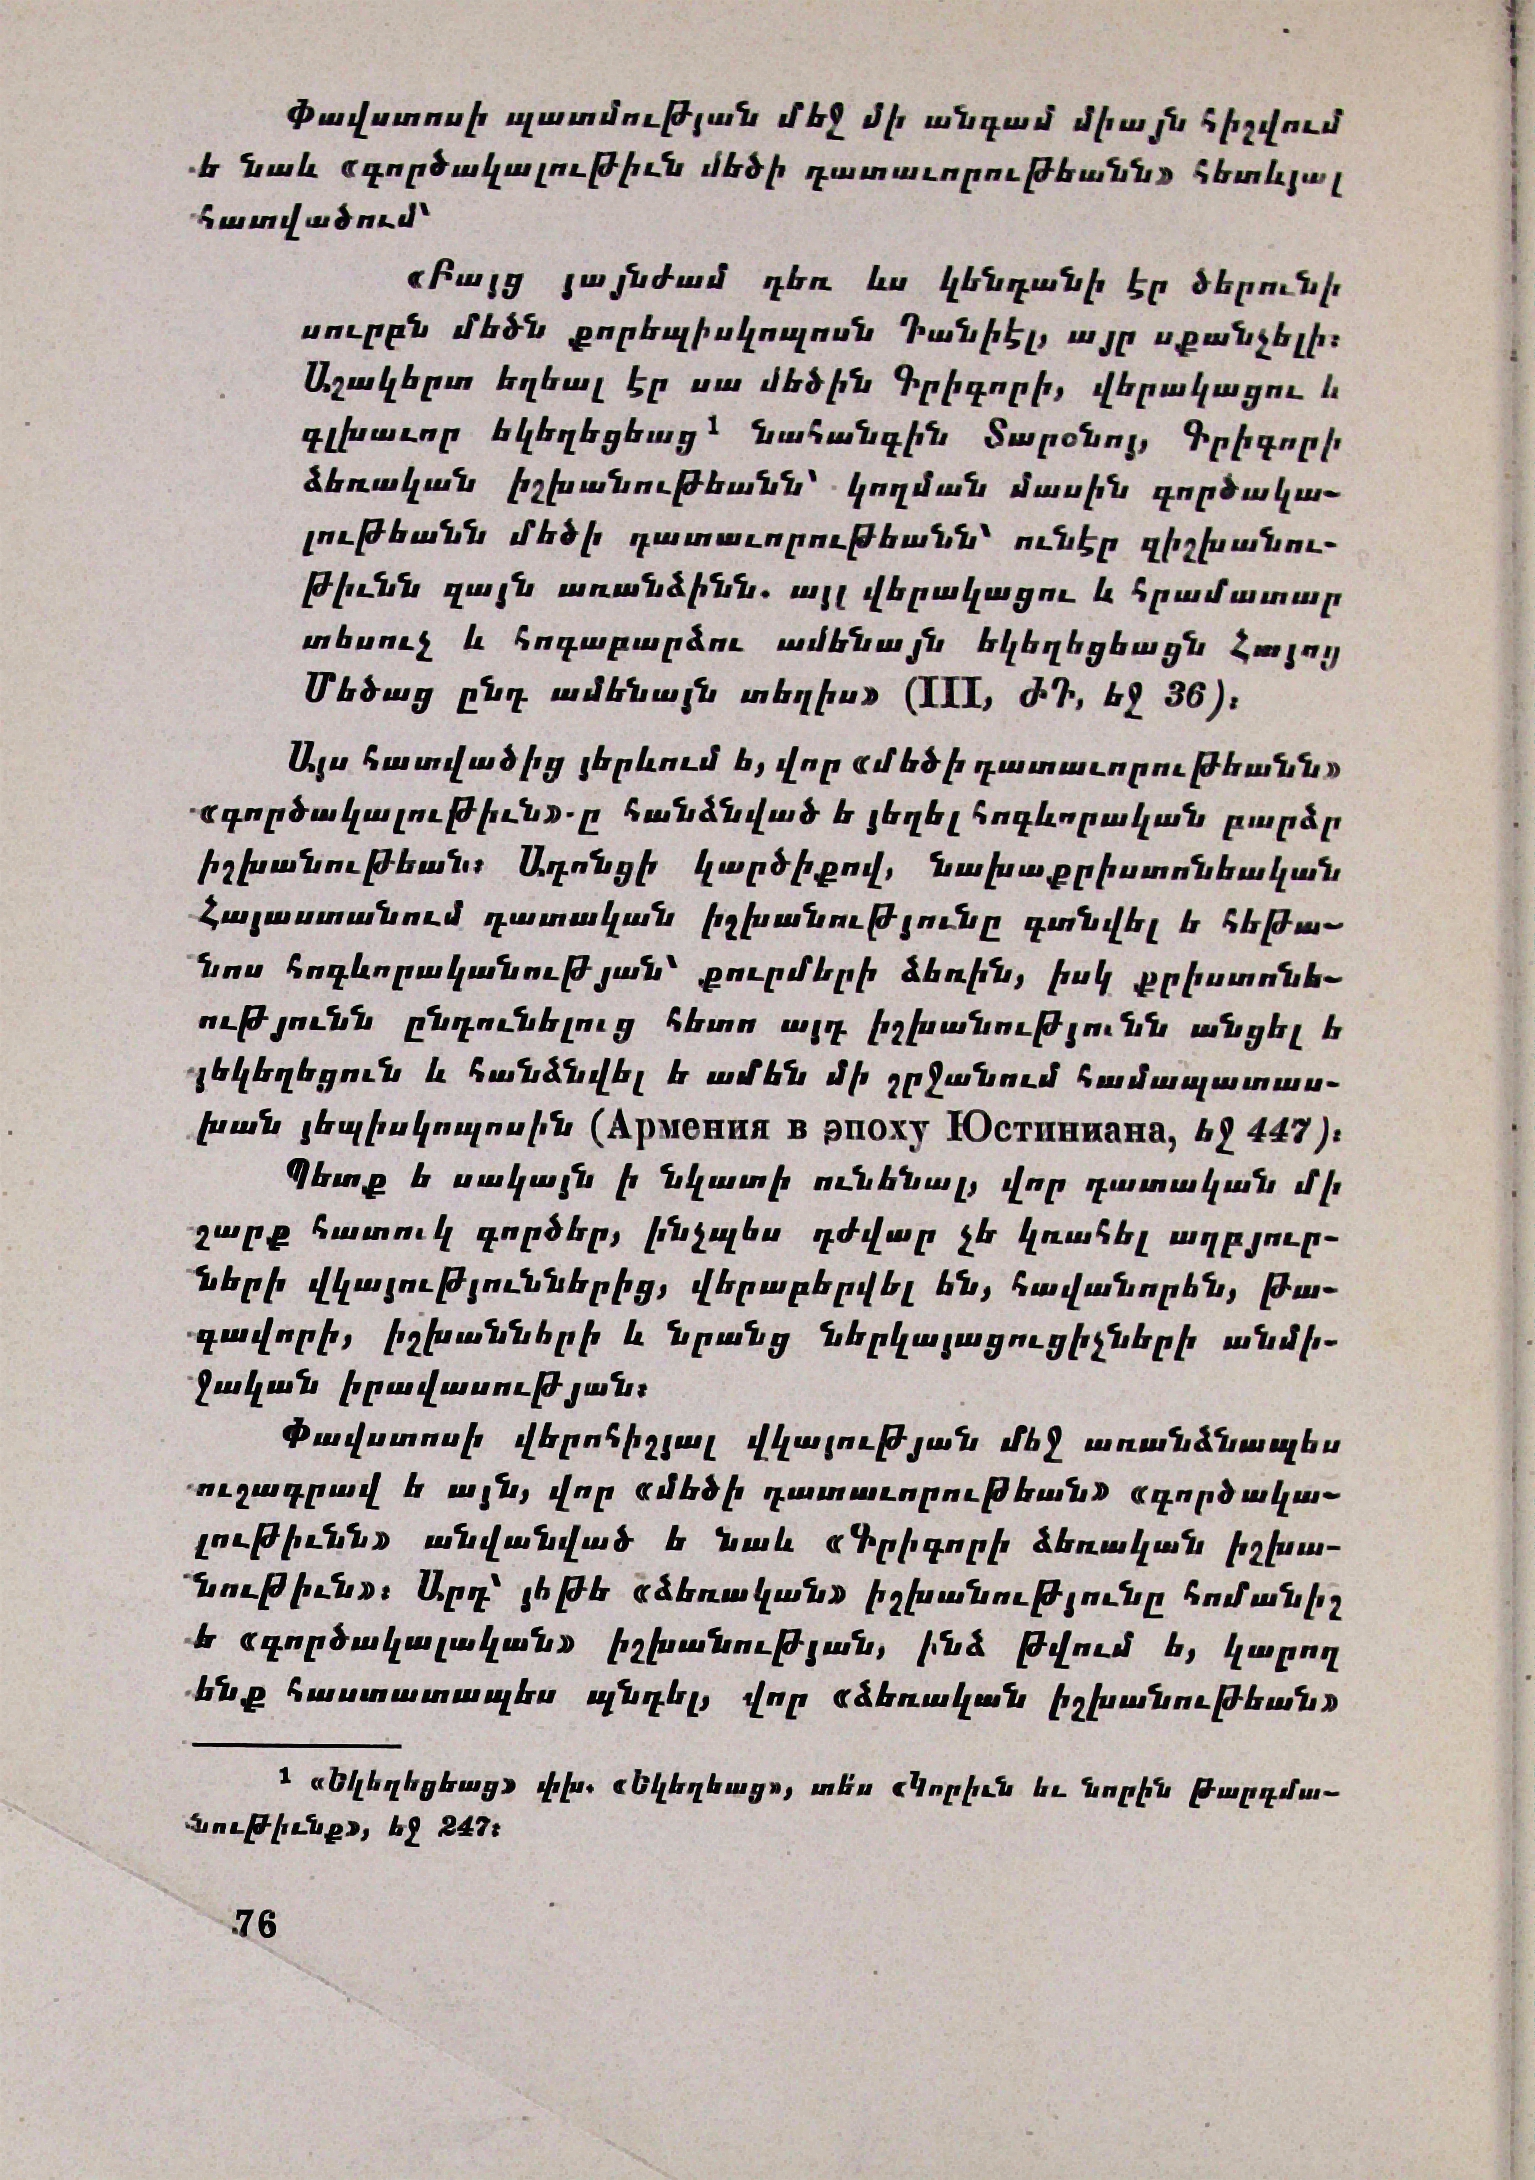 Փավստոսի պատմության մեջ մի անգամ միայն հիշվում
է նաև «գործակալութիւն մեծի դատաւորութեանն» հետևյալ
հատվածում՝
«Բայց յայնժամ դեռ ևս կենդանի էր ծերունի
սուրբն մեծն քորեպիսկոպոսն Դանիէլ, այր սքանչելի։
Աշակերտ եղեալ էր սա մեծին Գրիգորի, վերակացու և
գլխաւոր եկեղեցեաց¹ նահանգին Տարօնոյ, Գրիգորի
ձեռական իշխանութեանն՝ կողման մասին գործակա-
լութեանն մեծի դատաւորութեանն՝ ունէր զիշխանու-
թիւնն զայն առանձինն. այլ վերակացու և հրամատար
տեսուչ և հոգաբարձու ամենայն եկեղեցեացն Հայոց
Մեծաց ընդ ամենայն տեղիս» (III, ԺԴ, եջ 36)։
Այս հատվածից յերևում ե, վոր «մեծի դատաւորութեանն»
«գործակալութիւն»-ը հանձնված ե յեղել հոգևորական բարձր
իշխանութեան։ Ադոնցի կարծիքով, նախաքրիստոնեական
Հայաստանում դատական իշխանությունը գտնվել ե հեթա-
նոս հոգևորականության՝ քուրմերի ձեռին, իսկ քրիստոնե-
ությունն ընդունելուց հետո այդ իշխանությունն անցել ե
յեկեղեցուն և հանձնվել ե ամեն մի շրջանում համապատաս-
խան յեպիսկոպոսին (Армения в эпоху Юстиниана, եջ 447)։
Պետք ե սակայն ի նկատի ունենալ, վոր դատական մի
շարք հատուկ գործեր, ինչպես դժվար չե կռահել աղբյուր-
ների վկայություններից, վերաբերվել են, հավանորեն, թա-
գավորի, իշխանների և նրանց ներկայացուցիչների անմի-
ջական իրավասության։
Փավստոսի վերոհիշյալ վկայության մեջ առանձնապես
ուշագրավ ե այն, վոր «մեծի դատաւորութեան» «գործակա-
լութիւնն» անվանված ե նաև «Գրիգորի ձեռական իշխա-
նութիւն»։ Արդ՝ յեթե «ձեռական» իշխանությունը հոմանիշ
ե «գործակալական» իշխանության, ինձ թվում ե, կարող
ենք հաստատապես պնդել, վոր «ձեռական իշխանութեան»
¹ «Եկեղեցեաց» փխ. «Եկեղեաց», տես «Կորիւն եւ նորին թարգմա-
նութիւնք», եջ 247։
76